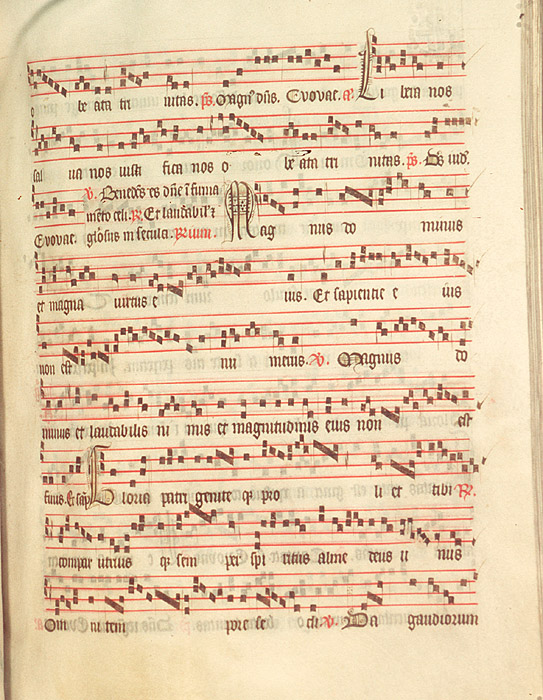 be ata tri nitas. ps. Magn' dns. Evovae. a. Li bera nos
sal va nos iusti fica nos o be ata tri nitas. ps. Ds iud'.
v. Benedict' es dne i firma
mento celi. R. Et laudabil' t
Evovae. glosus in secula. Rium. Mag nus do minus
et magna virtus e ius. Et sapientie e ius
non est nu merus. v. Magnus do
minus et laudabilis ni mis et magnitudinis eius non est
finis. Et sap Gloria patri genite q; pro li et tibi R.
compar utrius q; sem per spi ritus alme deus u nus
Om ni tem pore se cli. v. Da gaudiorum